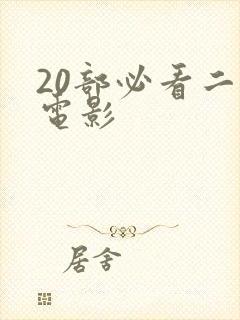 20部必看二
电影
居舍